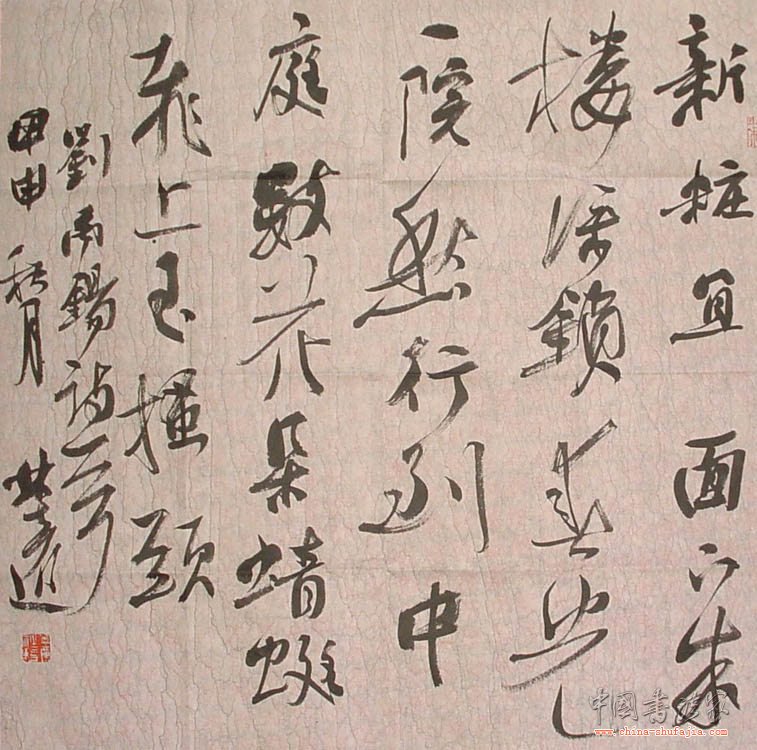 新妝宜面下朱
楼深鎖春光
一院愁行到中
庭数花朵蜻蜓
飛上玉搔頭
劉禹錫詩一首
甲申秋月
中国書法家
www.china-shufajia.com